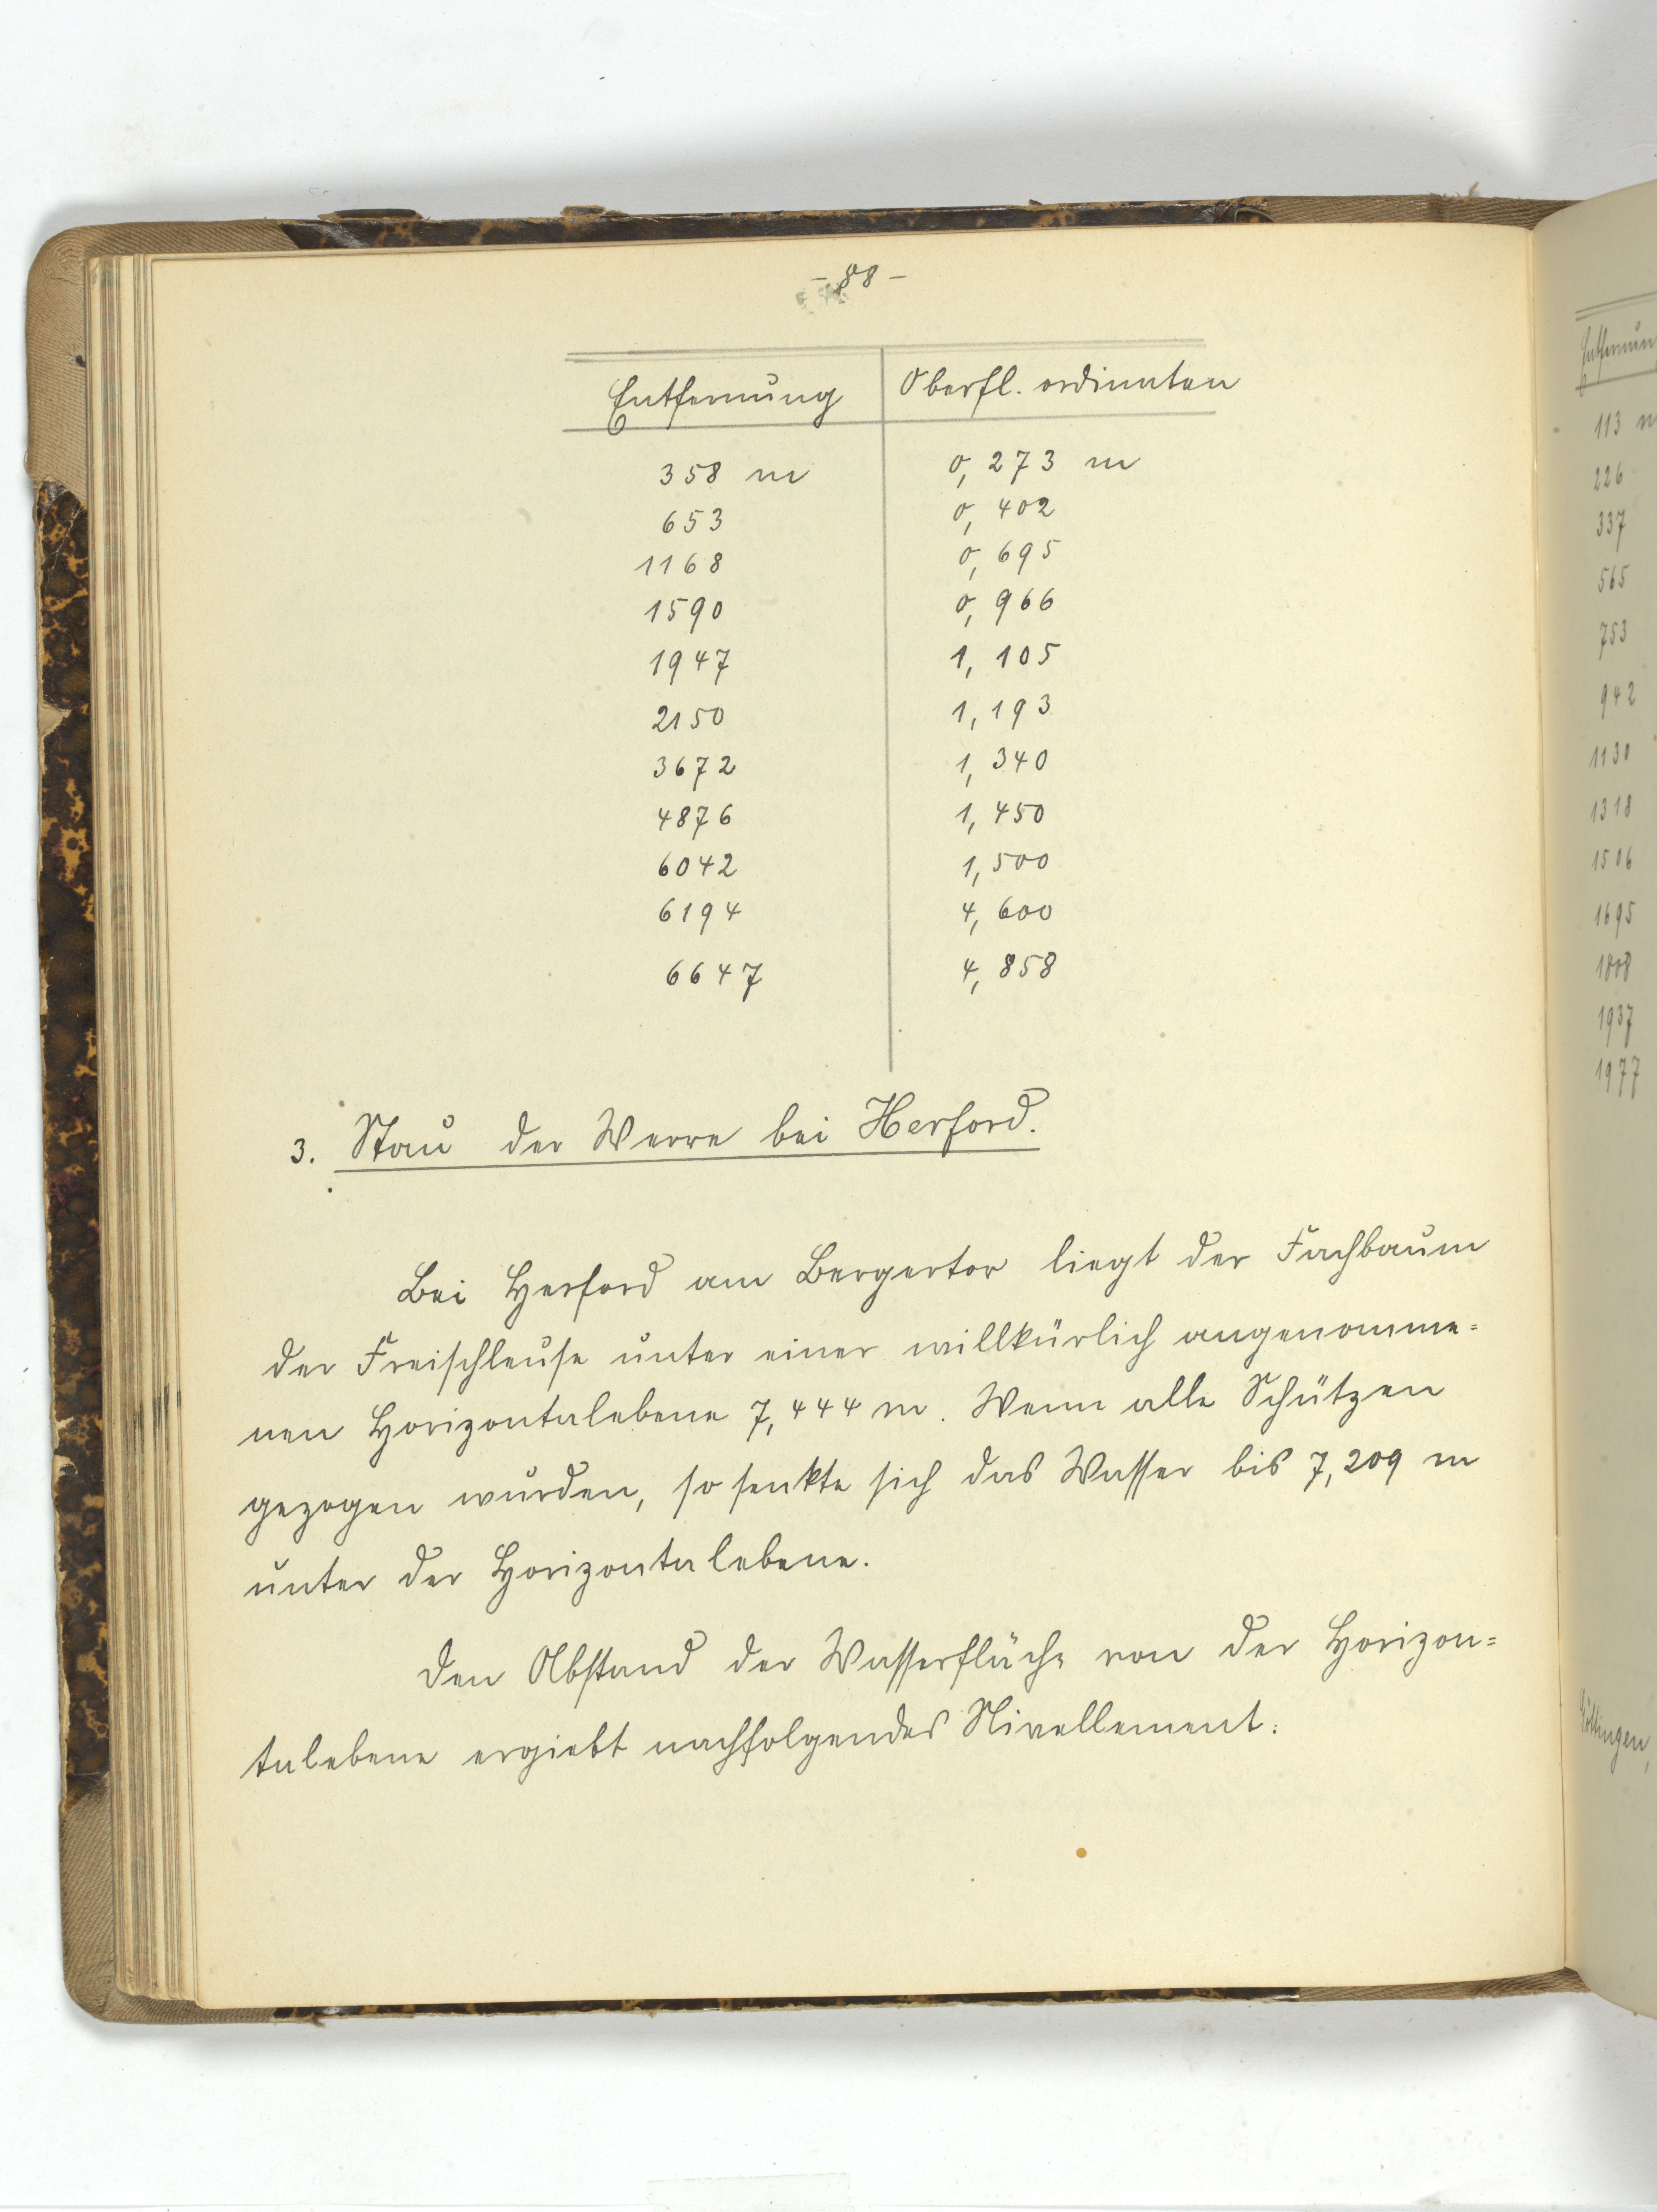 - 88 -
Entfernung Oberfl. ordinaten
358 m 0,273 m
653 0,402
1168 0,695
1590 0,966
1947 1,105
2150 1,193
3672 1,340
4876 1,450
6042 1,500
6194 4,600
6647 4,858
3. Stau der Werre bei Herford.
Bei Herford am Bergertor liegt der Fachbaum
der Freischleuse unter einer willkürlich angenomme=
nen Horizontalebene 7,444 m. Wenn alle Schützen
gezogen wurden, so senkte sich das Wasser bis 7,209 m
unter der Horizontalebene.
Den Abstand der Wasserfläche von der Horizon=
talebene ergiebt nachfolgendes Nivellement:
113 m
226
337
565
753
942
1130
1318
1506
1695
1808
1937
1977